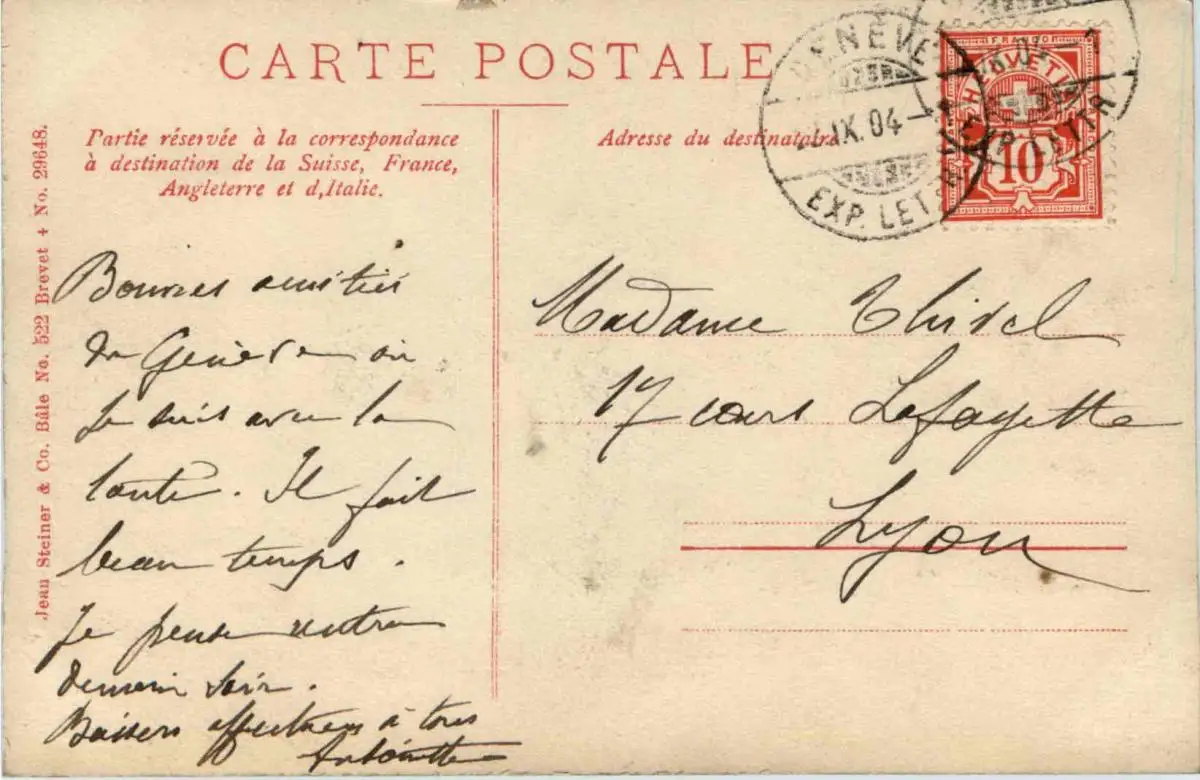 CARTE POSTALE
Partie réservée à la correspondance
à destination de la Suisse, France,
Angleterre et d,Italie.
Adresse du destinataire
Jean Steiner & Co. Bâle No. 522 Brevet + No. 29648.
GENÈVE
IX. 04
EXP. LETTR
FRANCO
HELVETIA
10
EXP. LETTR
Bonnes amitiés
de Genève où
je suis avec la
tante. Il fait
beau temps.
Je pense rentrer
demain soir.
Baisers affectueux à tous
Antoinette
Madame Thivel
17 cours Lafayette
Lyon